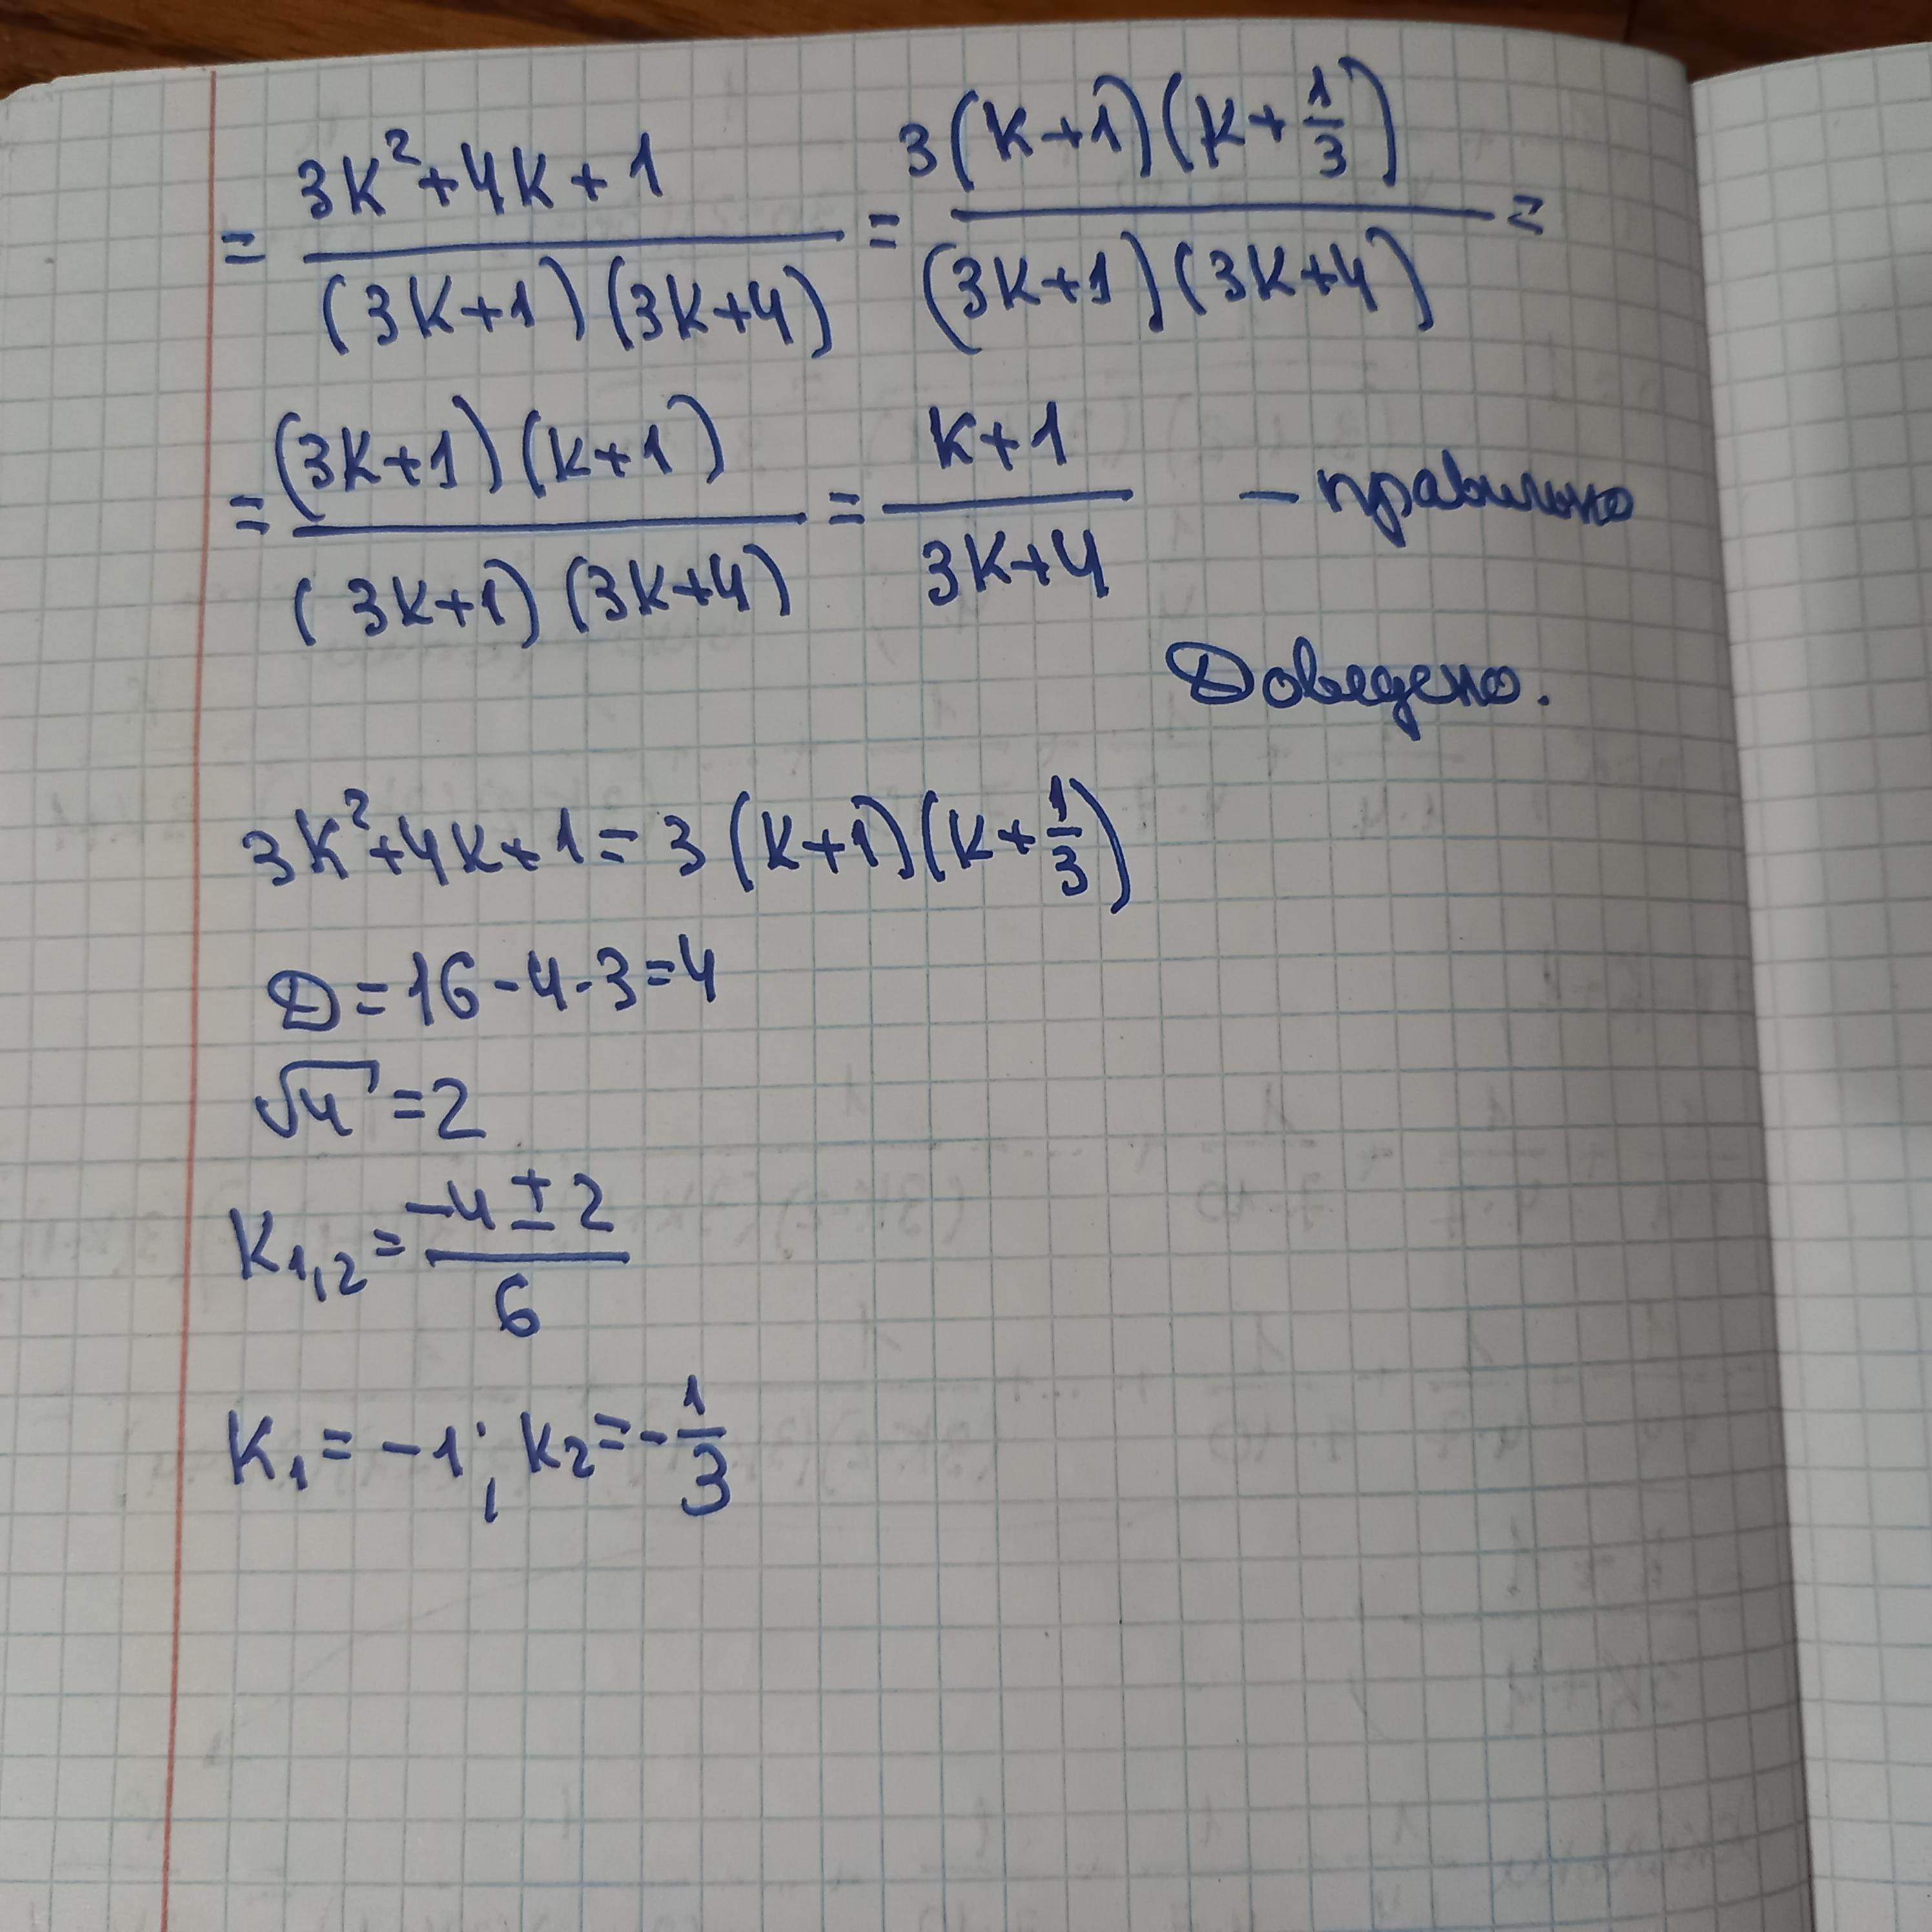 = (3k²+4k+1)/((3k+1)(3k+4)) = (3(k+1)(k+1/3))/((3k+1)(3k+4)) =
= ((3k+1)(k+1))/((3k+1)(3k+4)) = (k+1)/(3k+4) – правильно
Доведено.
3k²+4k+1 = 3(k+1)(k+1/3)
D = 16-4·3=4
√4 = 2
k₁,₂ = (-4±2)/6
k₁ = -1; k₂ = -1/3